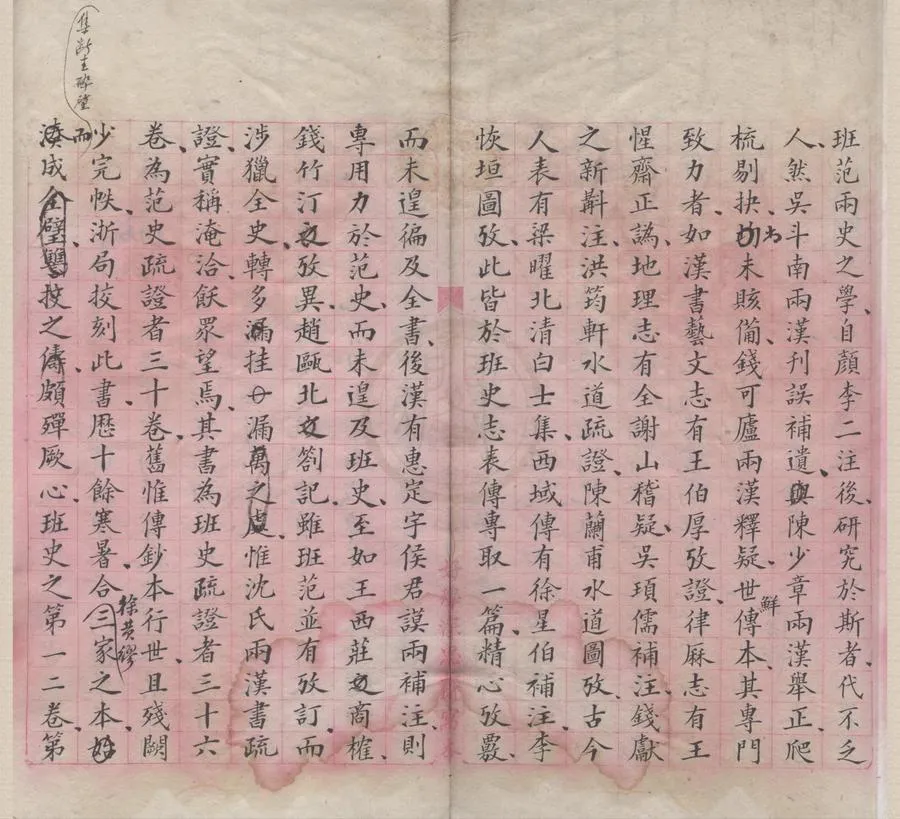 班范兩史之學、自顏李二注後、研究於斯者、代不乏
人、然吳斗南兩漢刊誤補遺、與陳少章兩漢舉正、爬
梳剔抉、尚未賅備、錢可廬兩漢釋疑、世鮮傳本、其專門
致力者、如漢書藝文志有王伯厚攷證、律厤志有王
惺齋正譌、地理志有全謝山稽疑、吳頊儒補注、錢獻
之新斠注、洪筠軒水道疏證、陳蘭甫水道圖攷、古今
人表有梁曜北清白士集、西域傳有徐星伯補注、李
恢垣圖攷、此皆於班史志表傳專取一篇、精心攷覈、
而未遑徧及全書、後漢有惠定宇侯君謨兩補注、則
專用力於范史、而未遑及班史、至如王西莊之商榷、
錢竹汀之攷異、趙甌北之劄記、雖班范並有攷訂、而
涉獵全史、轉多挂一漏萬之虞、惟沈氏兩漢書疏
證、實稱淹洽、飫眾望焉、其書為班史疏證者三十六
卷、為范史疏證者三十卷、舊惟傳鈔本行世、且殘闕
少完帙、浙局挍刻此書、歷十餘寒暑、合三家之本、
徐黃繆
集斷圭碎璧
而
湊成全璧、讐挍之儔、頗殫厥心、班史之第一二卷、第